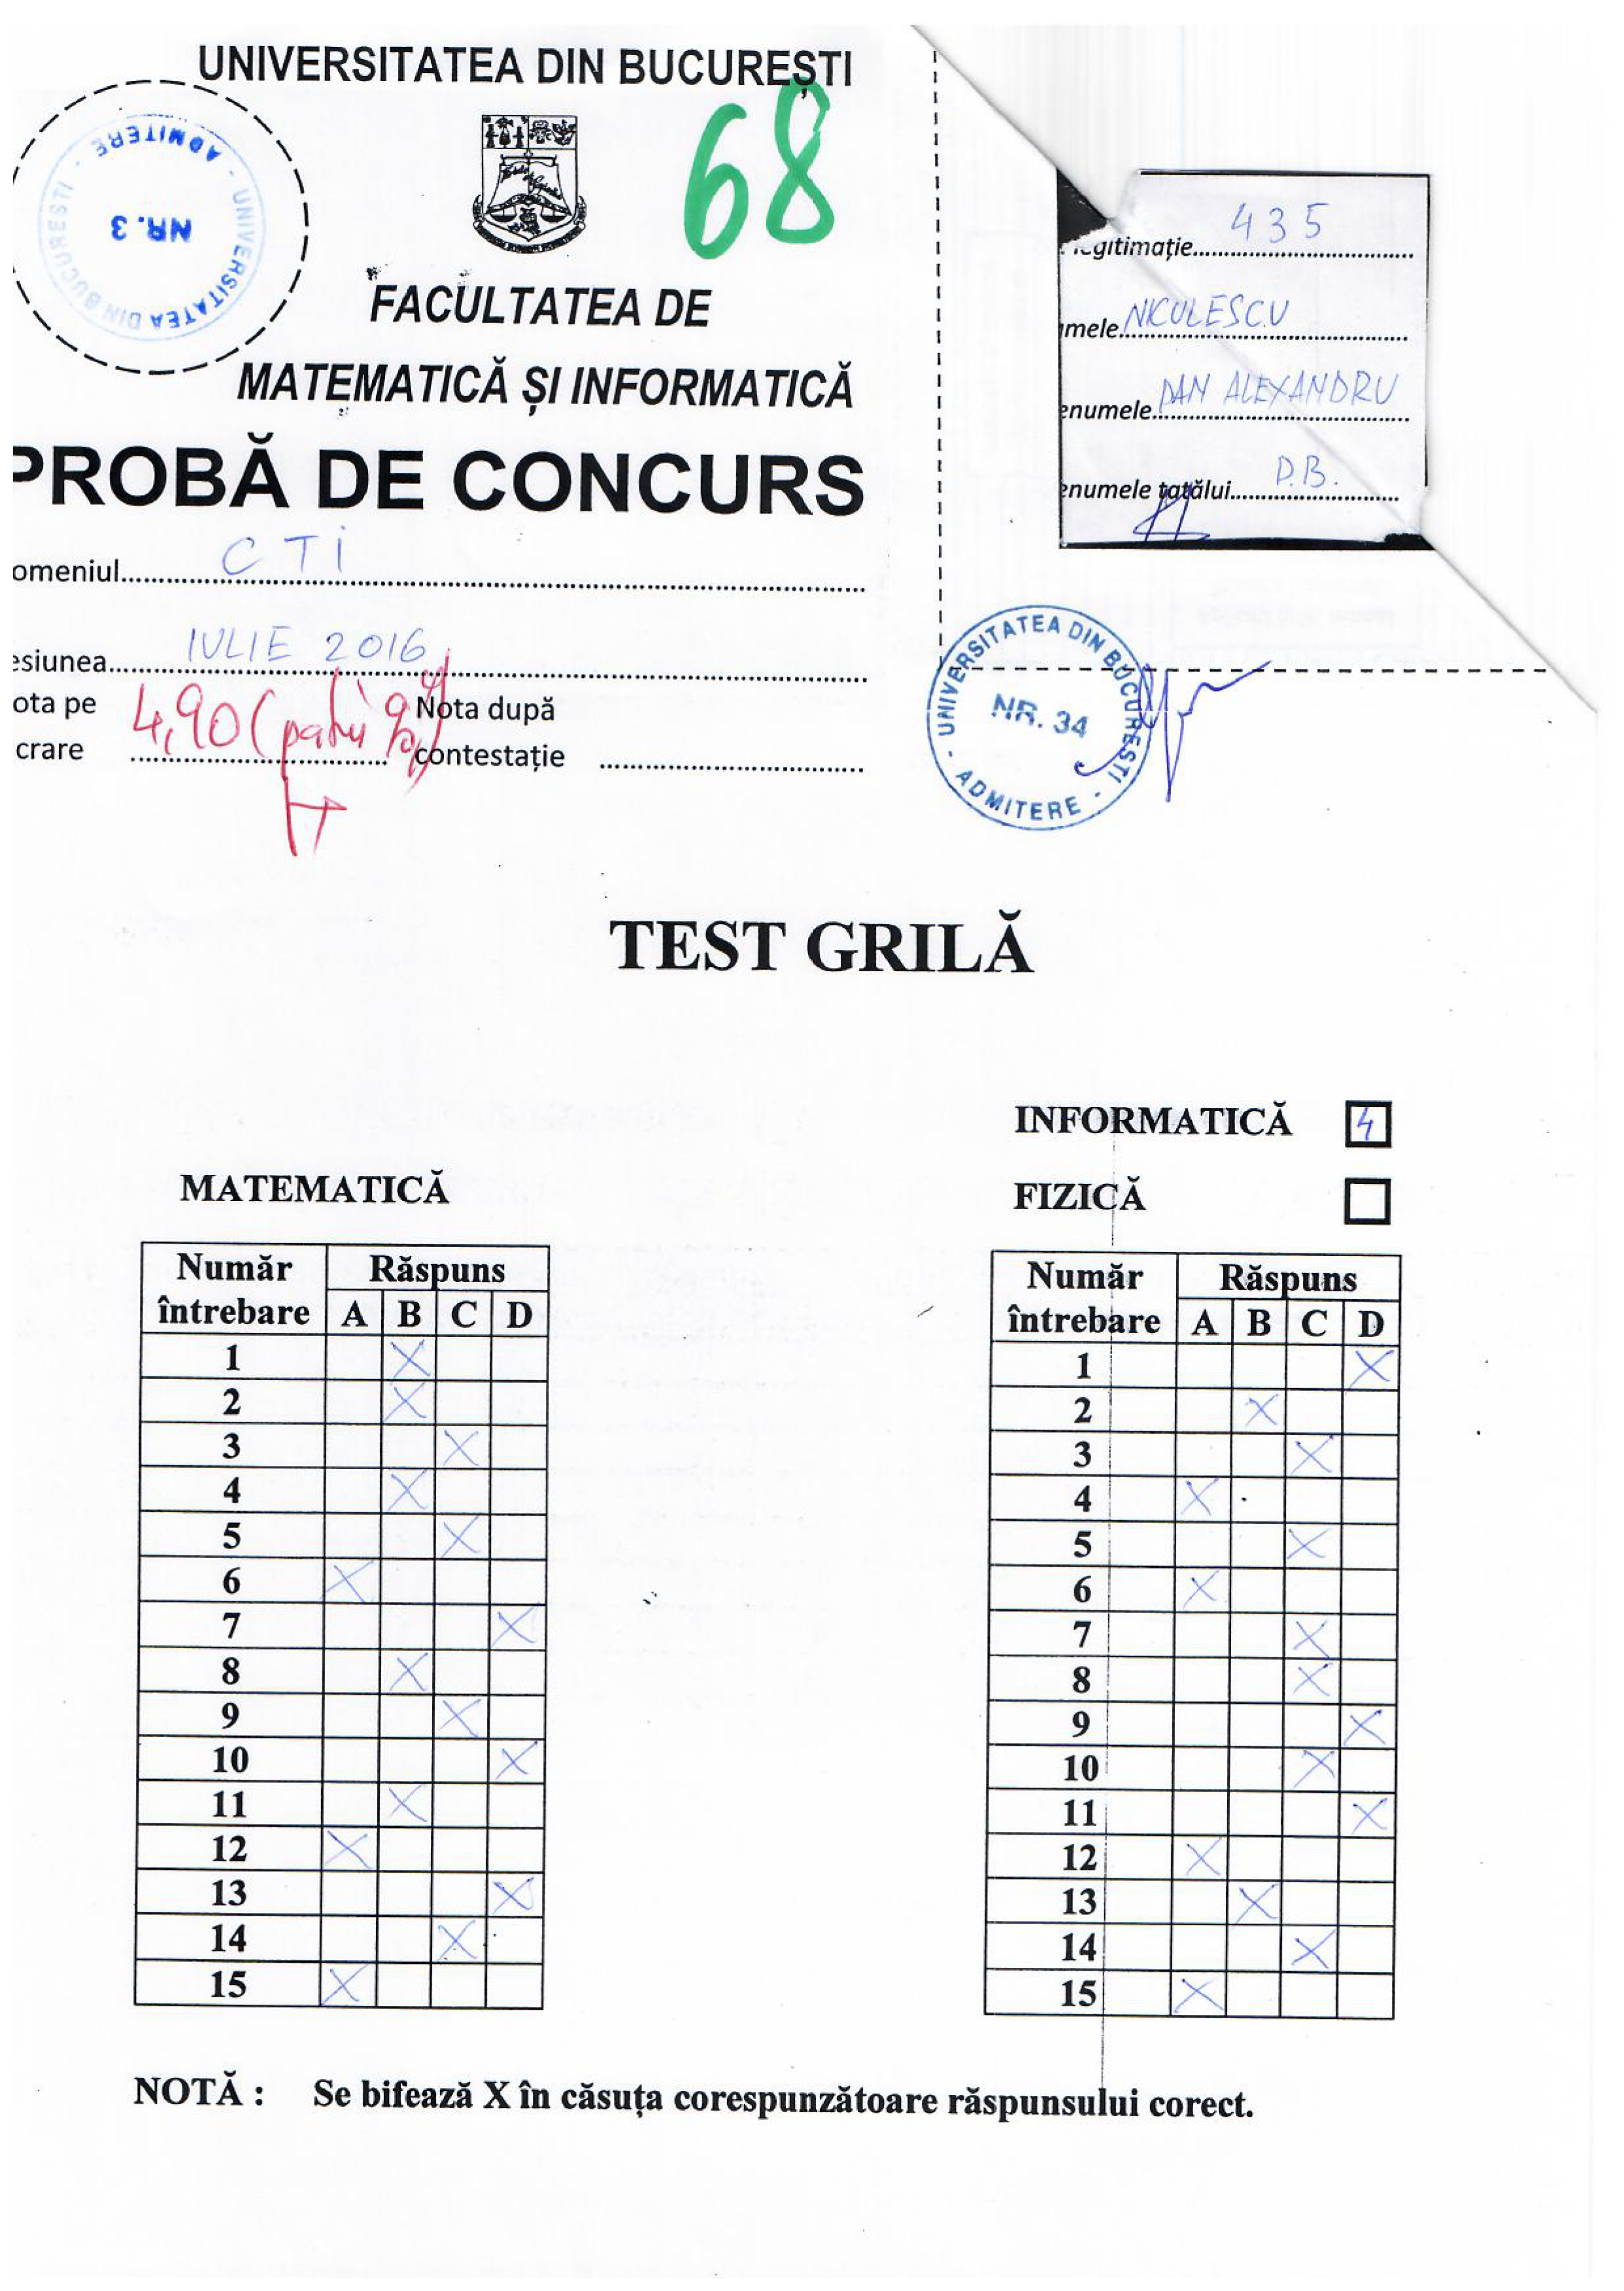 UNIVERSITATEA DIN BUCUREȘTI
68
ADMITERE - UNIVERSITATEA DIN BUCURESTI -
NR. 3
FACULTATEA DE
MATEMATICĂ ȘI INFORMATICĂ
PROBĂ DE CONCURS
omeniul CTI
esiunea IULIE 2016
ota pe
crare 4,90 (patru
Nota după
contestație
legitimație 435
mele NICULESCU
enumele DAN ALEXANDRU
enumele tatălui D.B.
UNIVERSITATEA DIN BUCURESTI - ADMITERE -
NR. 34
TEST GRILĂ
INFORMATICĂ 4
FIZICĂ
MATEMATICĂ
Număr întrebare Răspuns
A B C D
1 X
2 X
3 X
4 X
5 X
6 X
7 X
8 X
9 X
10 X
11 X
12 X
13 X
14 X
15 X
Număr întrebare Răspuns
A B C D
1 X
2 X
3 X
4 X
5 X
6 X
7 X
8 X
9 X
10 X
11 X
12 X
13 X
14 X
15 X
NOTĂ : Se bifează X în căsuța corespunzătoare răspunsului corect.